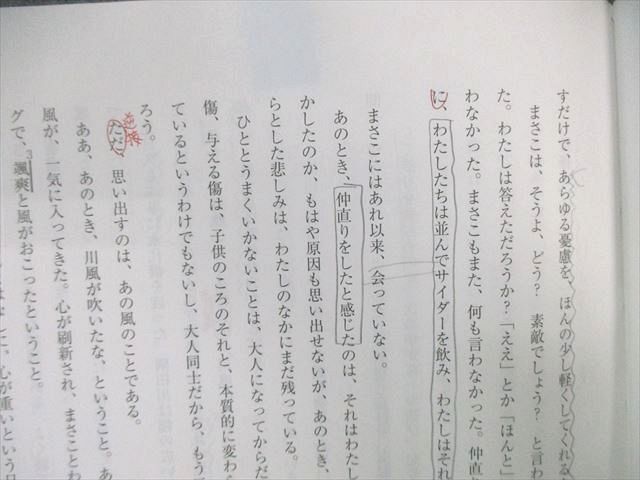 すだけで、あらゆる憂慮を、ほんの少し軽くしてくれる
まさこは、そうよ、どう？　素敵でしょう？　と言わ
た。わたしは答えただろうか？「ええ」とか「ほんと」
わなかった。まさこもまた、何も言わなかった。仲直
に、わたしたちは並んでサイダーを飲み、わたしはそれ
まさこにはあれ以来、会っていない。
あのとき、仲直りをしたと感じたのは、それはわたし
かしたのか、もはや原因も思い出せないが、あのとき、
らとした悲しみは、わたしのなかにまだ残っている。
ひととうまくいかないことは、大人になってからだ
傷、与える傷は、子供のころのそれと、本質的に変わ
ているというわけでもないし、大人同士だから、もう
ろう。
逆接
ただ、思い出すのは、あの風のことである。
ああ、あのとき、川風が吹いたな、ということ。あ
風が、一気に入ってきた。心が刷新され、まさことわ
3
グで、颯爽と風がおこったということ。
心が重いという